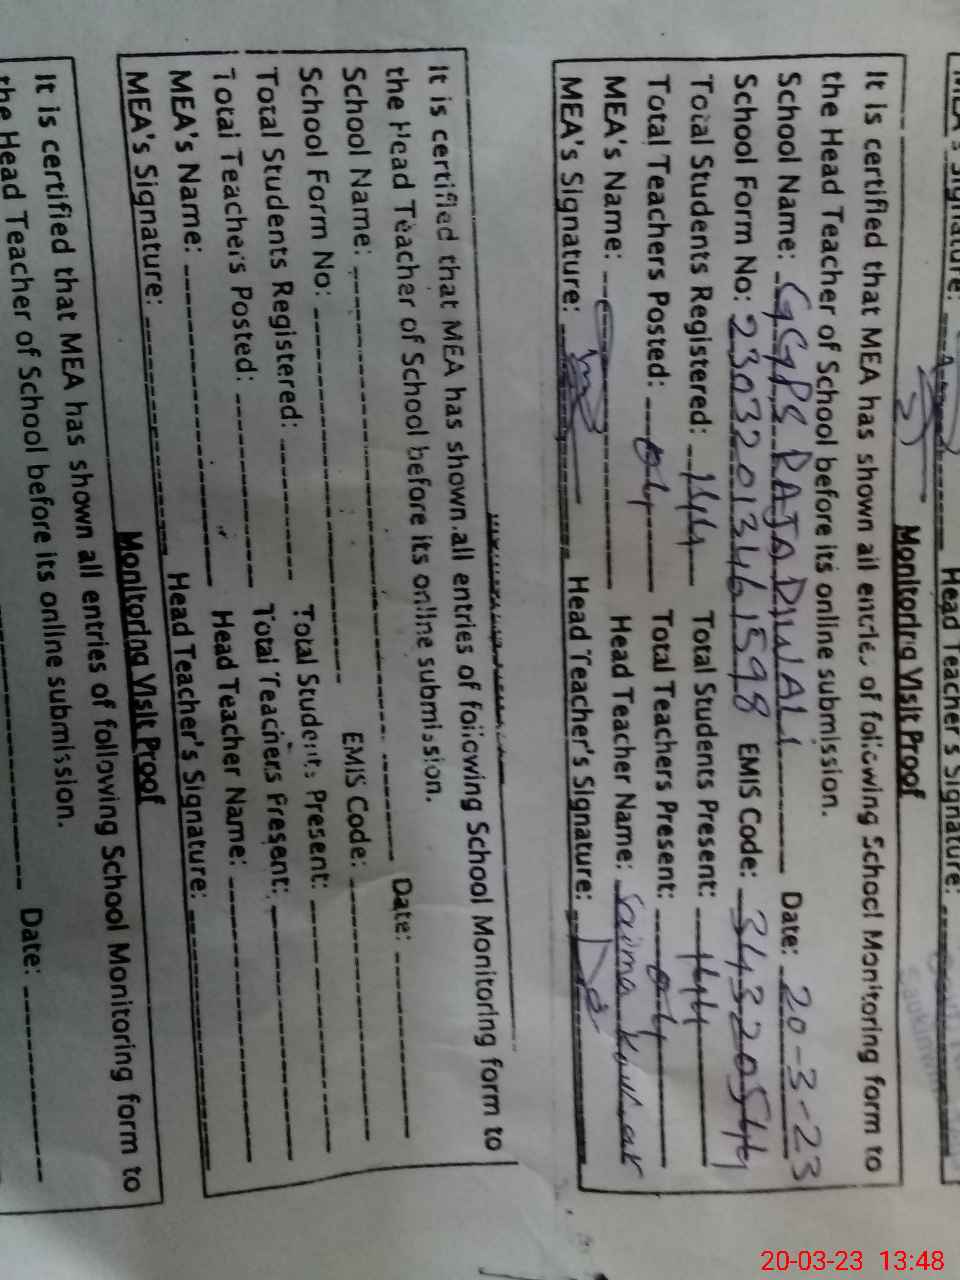 MEA's Signature: Head Teacher's Signature:
Monitoring Visit Proof
It is certified that MEA has shown all entries of following School Monitoring form to
the Head Teacher of School before its online submission.
School Name: GGPS RAJADIWALI Date: 20-3-23
School Form No: 23032013461598 EMIS Code: 34320544
Total Students Registered: 144 Total Students Present: 144
Total Teachers Posted: 04 Total Teachers Present: 04
MEA's Name: Head Teacher Name: Saima
MEA's Signature: Head Teacher's Signature:
It is certified that MEA has shown all entries of following School Monitoring form to
the Head Teacher of School before its online submission.
School Name: Date:
School Form No: EMIS Code:
Total Students Registered: Total Students Present:
Total Teachers Posted: Total Teachers Present:
MEA's Name: Head Teacher Name:
MEA's Signature: Head Teacher's Signature:
Monitoring Visit Proof
It is certified that MEA has shown all entries of following School Monitoring form to
the Head Teacher of School before its online submission.
Date:
20-03-23 13:48